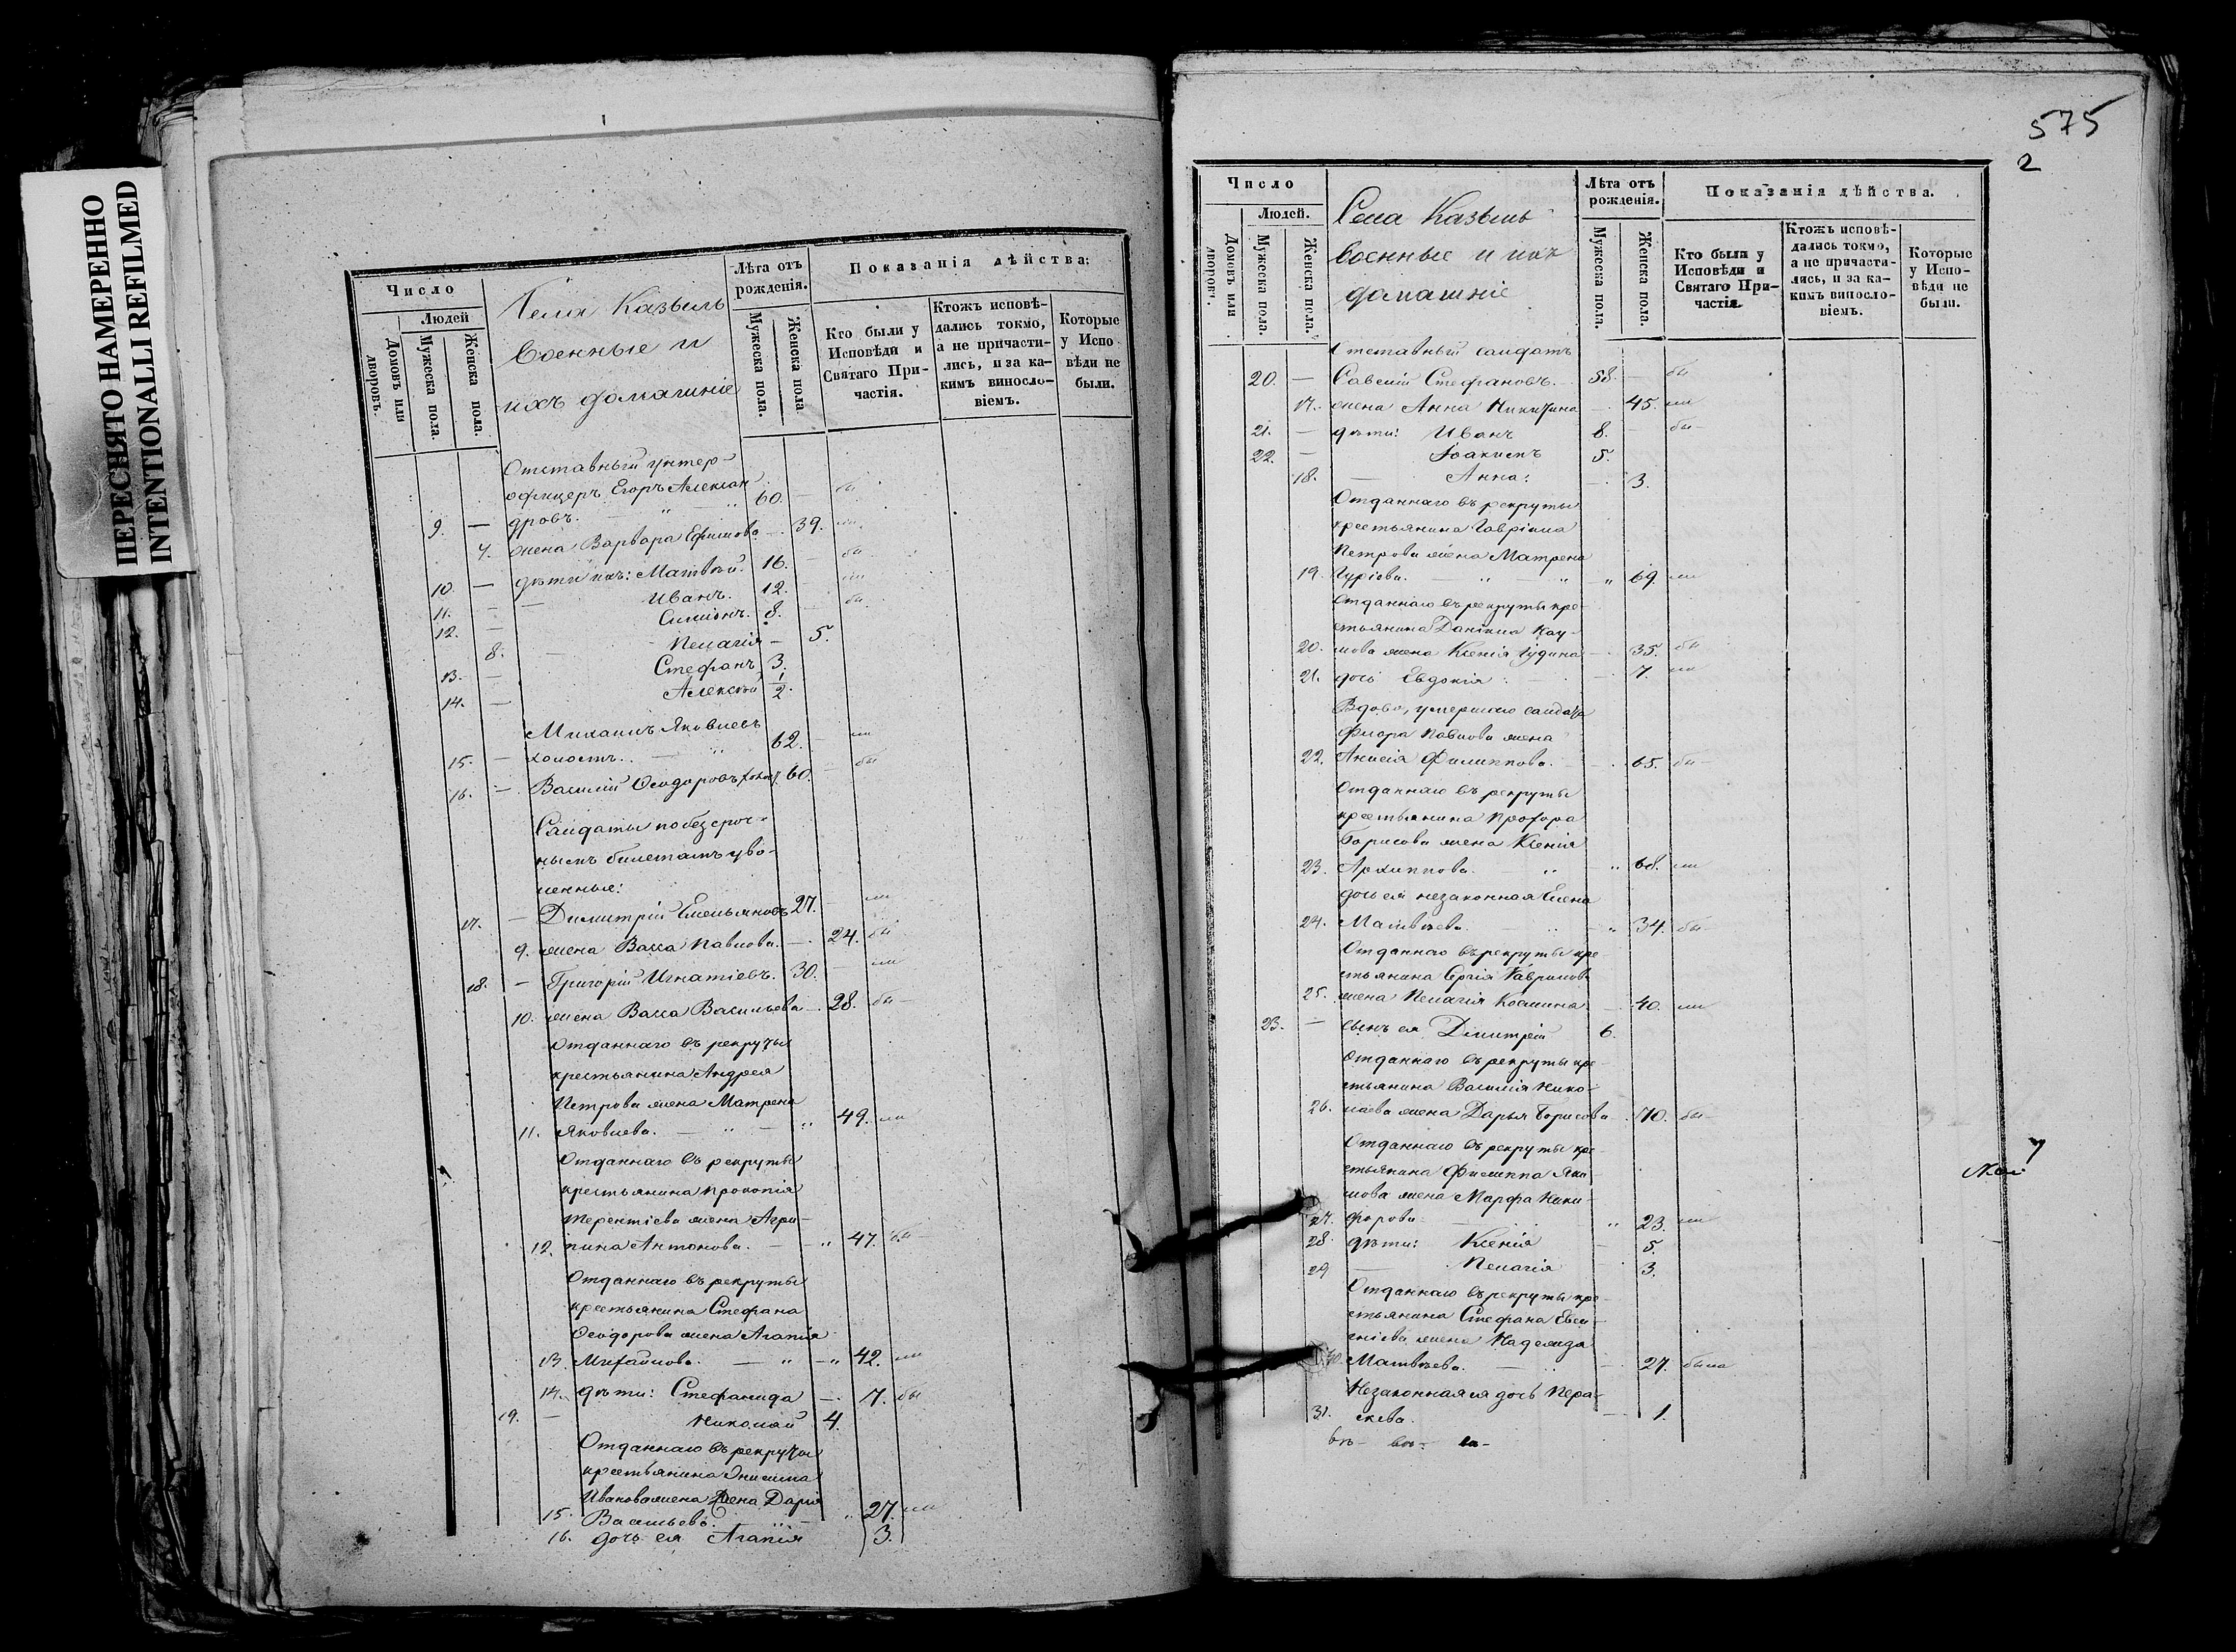 ПЕРЕСНЯТО НАМЕРЕННО
INTENTIONALLI REFILMED
Число
Людей
Домовъ или дворовъ.
Мужеска пола.
Женска пола.
Села Казыль
военные и
ихъ домашніе
Лѣта отъ рожденія.
Мужеска пола.
Женска пола
Показанія дѣйства:
Кто были у Исповѣди и Святаго Причастія.
Ктожъ исповѣдались токмо, а не причастились, и за какимъ винословіемъ.
Которые у Исповѣди не были.
Отставный унтер-
офицеръ Егоръ Алексан
9. — дровъ. 60. — бы
7. жена Варвара Ефимова — 39. ли
10. — дѣти ихъ: Матвѣй. 16. — бы
11. — Иванъ. 12. — ли
12. — Симіонъ. 8. — бы
8. — Пелагія — 5.
13. — Стефанъ 3.
14. — Алексѣй 1/2.
Михаилъ Яковлевъ
15. — холостъ. 62. — ли
16. — Василій Ѳеодоровъ холос. 60. — бы
Салдаты по безсроч-
нымъ билетамъ уво-
ленные:
17. — Димитрій Емельяновъ 27. — ли
9. жена Васса Павлова. — 24. бы
18. — Григорій Игнатіевъ. 30. — ли
10. жена Васса Васильева — 28. бы —
Отданнаго въ рекруты
крестьянина Андрея
Петрова жена Матрена
11. Яковлева. — „ — „ 49. ли
Отданнаго въ рекруты
крестьянина Прокопія
Терентіева жена Агри-
12. пина Антонова. — „ 47. бы —
Отданнаго въ рекруты
крестьянина Стефана
Ѳеодорова жена Агапія
13. Михайлова. — „ — „ 42. ли
14. дѣти: Стефанида — 17. бы
19. — Николай 4.
Отданнаго въ рекруты
крестьянина Онисима
Иванова жена Дарія
15. Васильева. „ 27. ли
16. дочь ея Агапія 3.
575
2
Число
Людей.
Домовъ или дворовъ.
Мужеска пола.
Женска пола.
Села Казыль
военные и ихъ
домашніе
Лѣта отъ рожденія.
Мужеска пола.
Женска пола.
Показанія дѣйства.
Кто были у Исповѣди и Святаго Причастія.
Ктожъ исповѣдались токмо, а не причастились, и за какимъ винословіемъ.
Которые у Исповѣди не были.
Отставный салдатъ
20. — Савелій Стефановъ. 58. — бы
17. жена Анна Никитина — 45. ли
21. — дѣти: Иванъ 8. — бы —
22. — Іоакимъ 5.
18. — Анна: — 3.
Отданнаго въ рекруты
крестьянина Гавріила
Петрова жена Матрена
19. Гуріева. — „ — „ 69. ли
Отданнаго въ рекруты кре-
стьянина Даніила Нау-
20. мова жена Ксенія Іудина — 35. бы
21. дочь Евдокія: — 7. ли
Вдова, умершаго салдата
Флора Павлова жена
22. Анисія Филиппова. — 65. бы —
Отданнаго въ рекруты
крестьянина Прохора
Борисова жена Ксенія
23. Архиппова. „ „ 68. ли
дочь ея незаконная Елена
24. Матвѣева. — „ — „ 34. бы —
Отданнаго въ рекруты кре
стьянина Сергія Гаврилова
25. жена Пелагія Козмина — 40. ли
23. — сынъ ея Дмитрій 6.
Отданнаго въ рекруты кре-
стьянина Василія Нико-
26. лаева жена Дарья Борисова 70. бы —
Отданнаго въ рекруты кре-
стьянина Филиппа Яки-
мова жена Марфа Ники-
27. форова — „ 23. ли
28. дѣти: Ксенія — 5.
29 — Пелагія 3.
Отданнаго въ рекруты кре-
стьянина Стефана Евси-
гніева жена Надежда
30. Матвѣева. — 27. была
Незаконная ея дочь Пера-
31. скева. — 1.